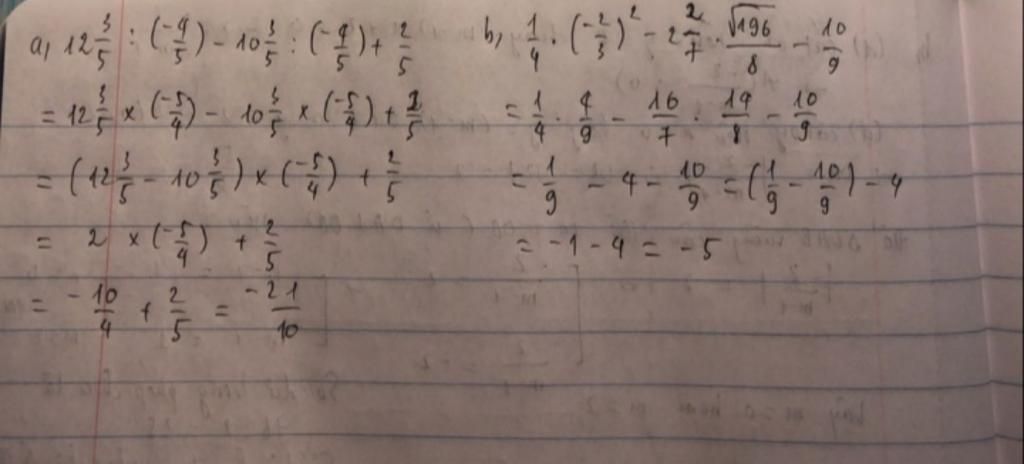 a, 12 3/5 : (-4/5) - 10 3/5 : (-4/5) + 2/5
= 12 3/5 × (-5/4) - 10 3/5 × (-5/4) + 2/5
= (12 3/5 - 10 3/5) × (-5/4) + 2/5
= 2 × (-5/4) + 2/5
= -10/4 + 2/5 = -21/10
b, 1/4 · (-2/3)² - 2 2/7 · √196/8 - 10/9
= 1/4 · 4/9 - 16/7 · 14/8 - 10/9
= 1/9 - 4 - 10/9 = (1/9 - 10/9) - 4
= -1 - 4 = -5